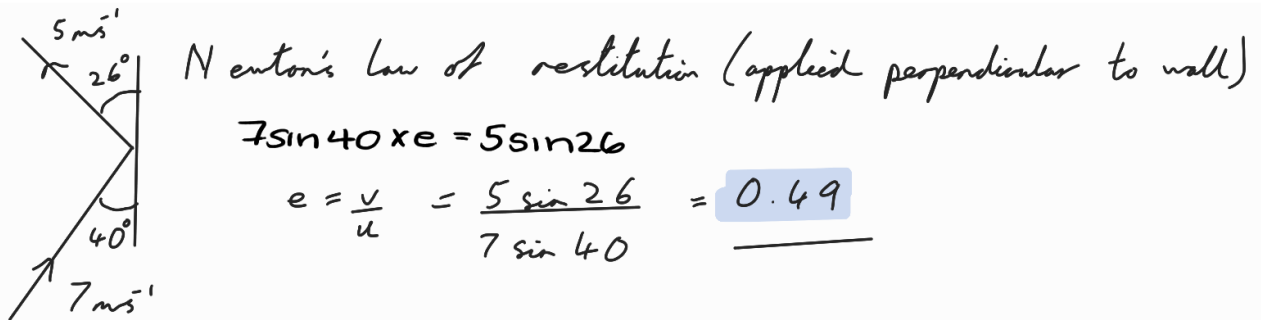 5 ms⁻¹
26°
Newton's law of restitution (applied perpendicular to wall)
7sin40 x e = 5sin26
e = v/u = 5 sin 26 / 7 sin 40 = 0.49
40°
7 ms⁻¹